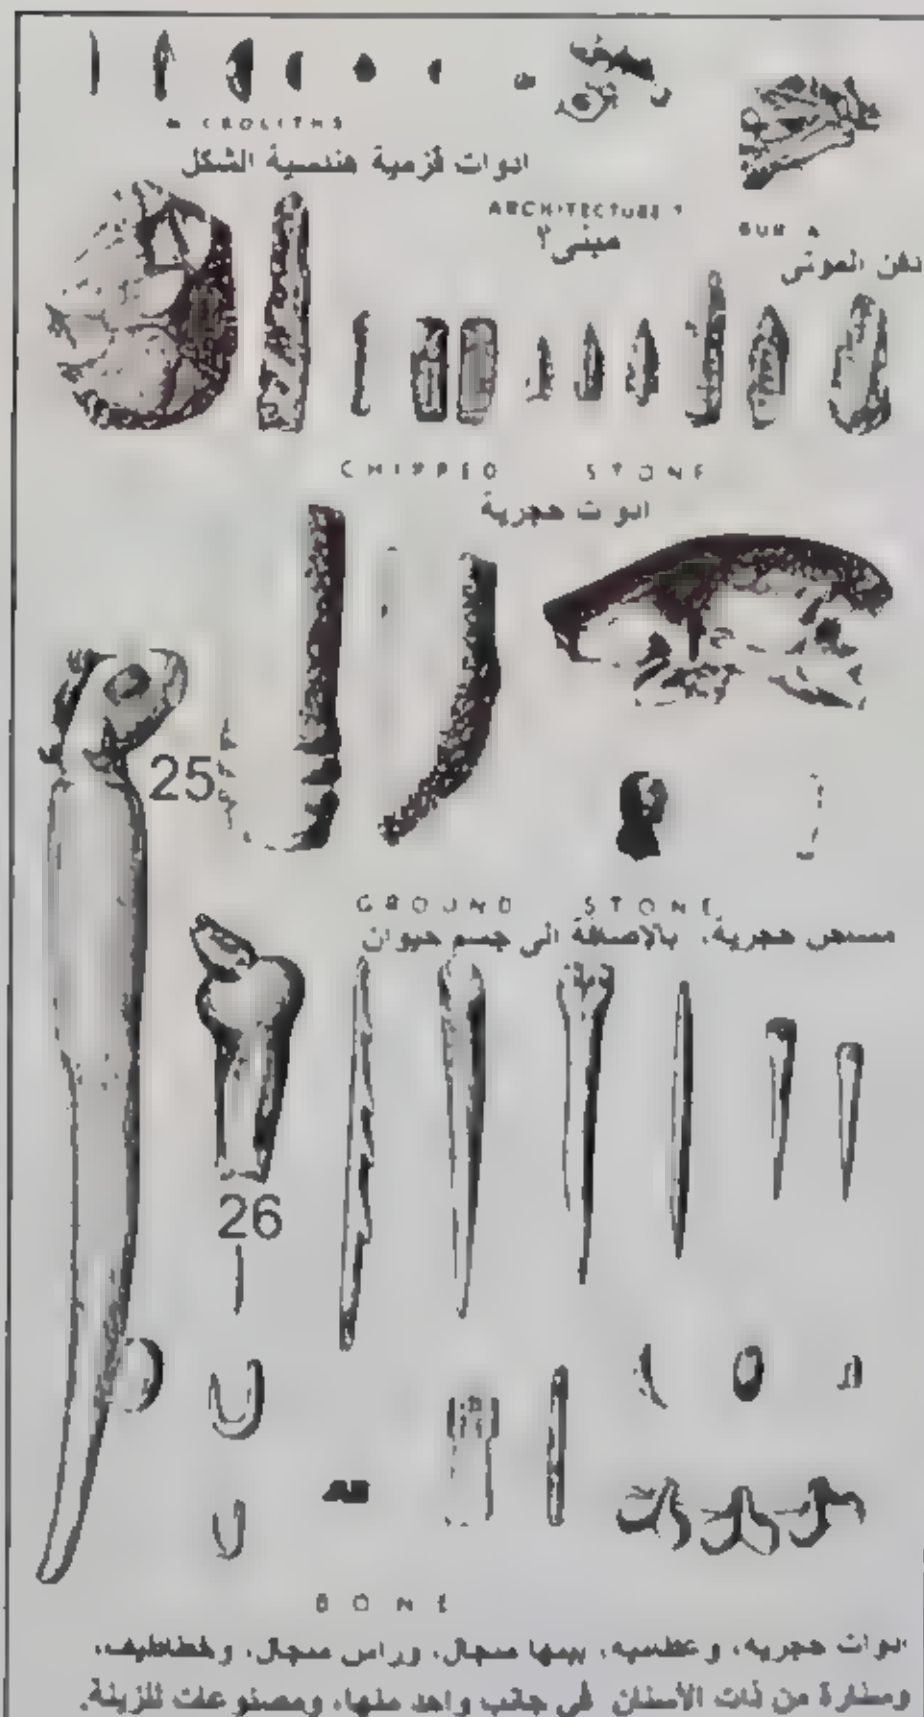 MICROLITHS
ادوات قزمية هندسية الشكل
ARCHITECTURE ?
مبنى؟
دفن الموتى
CHIPPED STONE
ادوات حجرية
25
GROUND STONE
حجرية، بالإضافة الى جسم حيوان
26
BONE
ادوات حجرية، وعظمية، بينها منجال، وراس منجال، وخطاطيف،
من ذات الأسنان في جانب واحد منها، ومصنوعات للزينة.